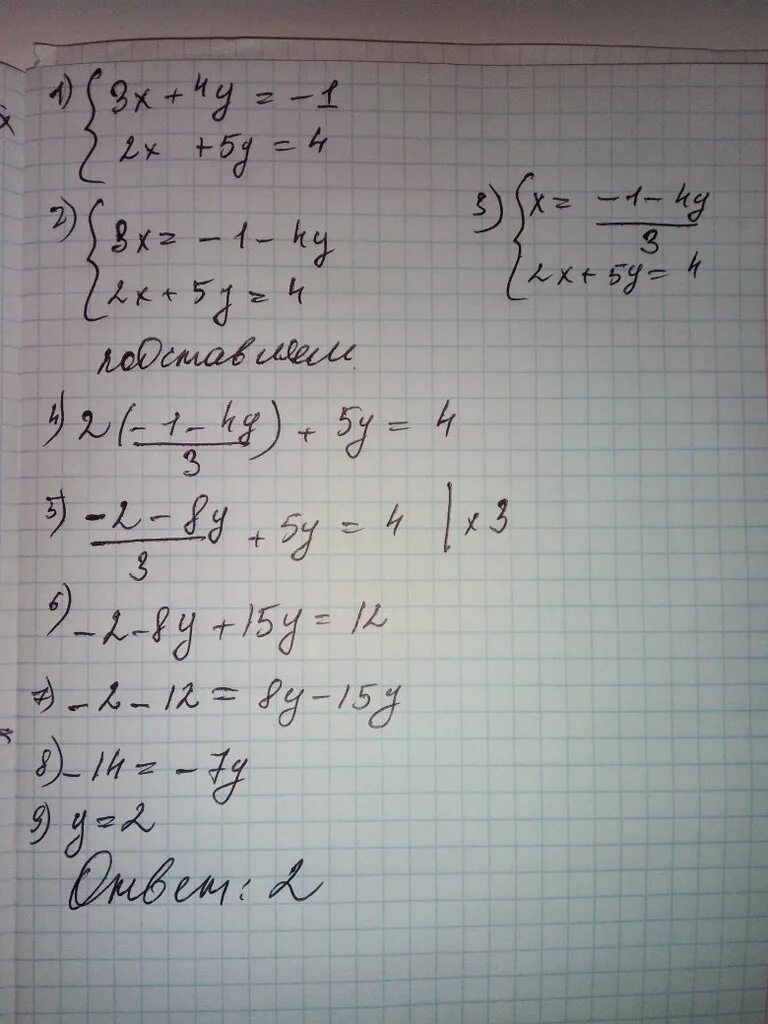 1) { 3x + 4y = -1
2x + 5y = 4
2) { 3x = -1 - 4y
2x + 5y = 4
3) { x = (-1 - 4y)/3
2x + 5y = 4
подставляем
4) 2 (-1 - 4y)/3 + 5y = 4
5) (-2 - 8y)/3 + 5y = 4 | x 3
6) -2 - 8y + 15y = 12
7) -2 - 12 = 8y - 15y
8) -14 = -7y
9) y = 2
Ответ: 2